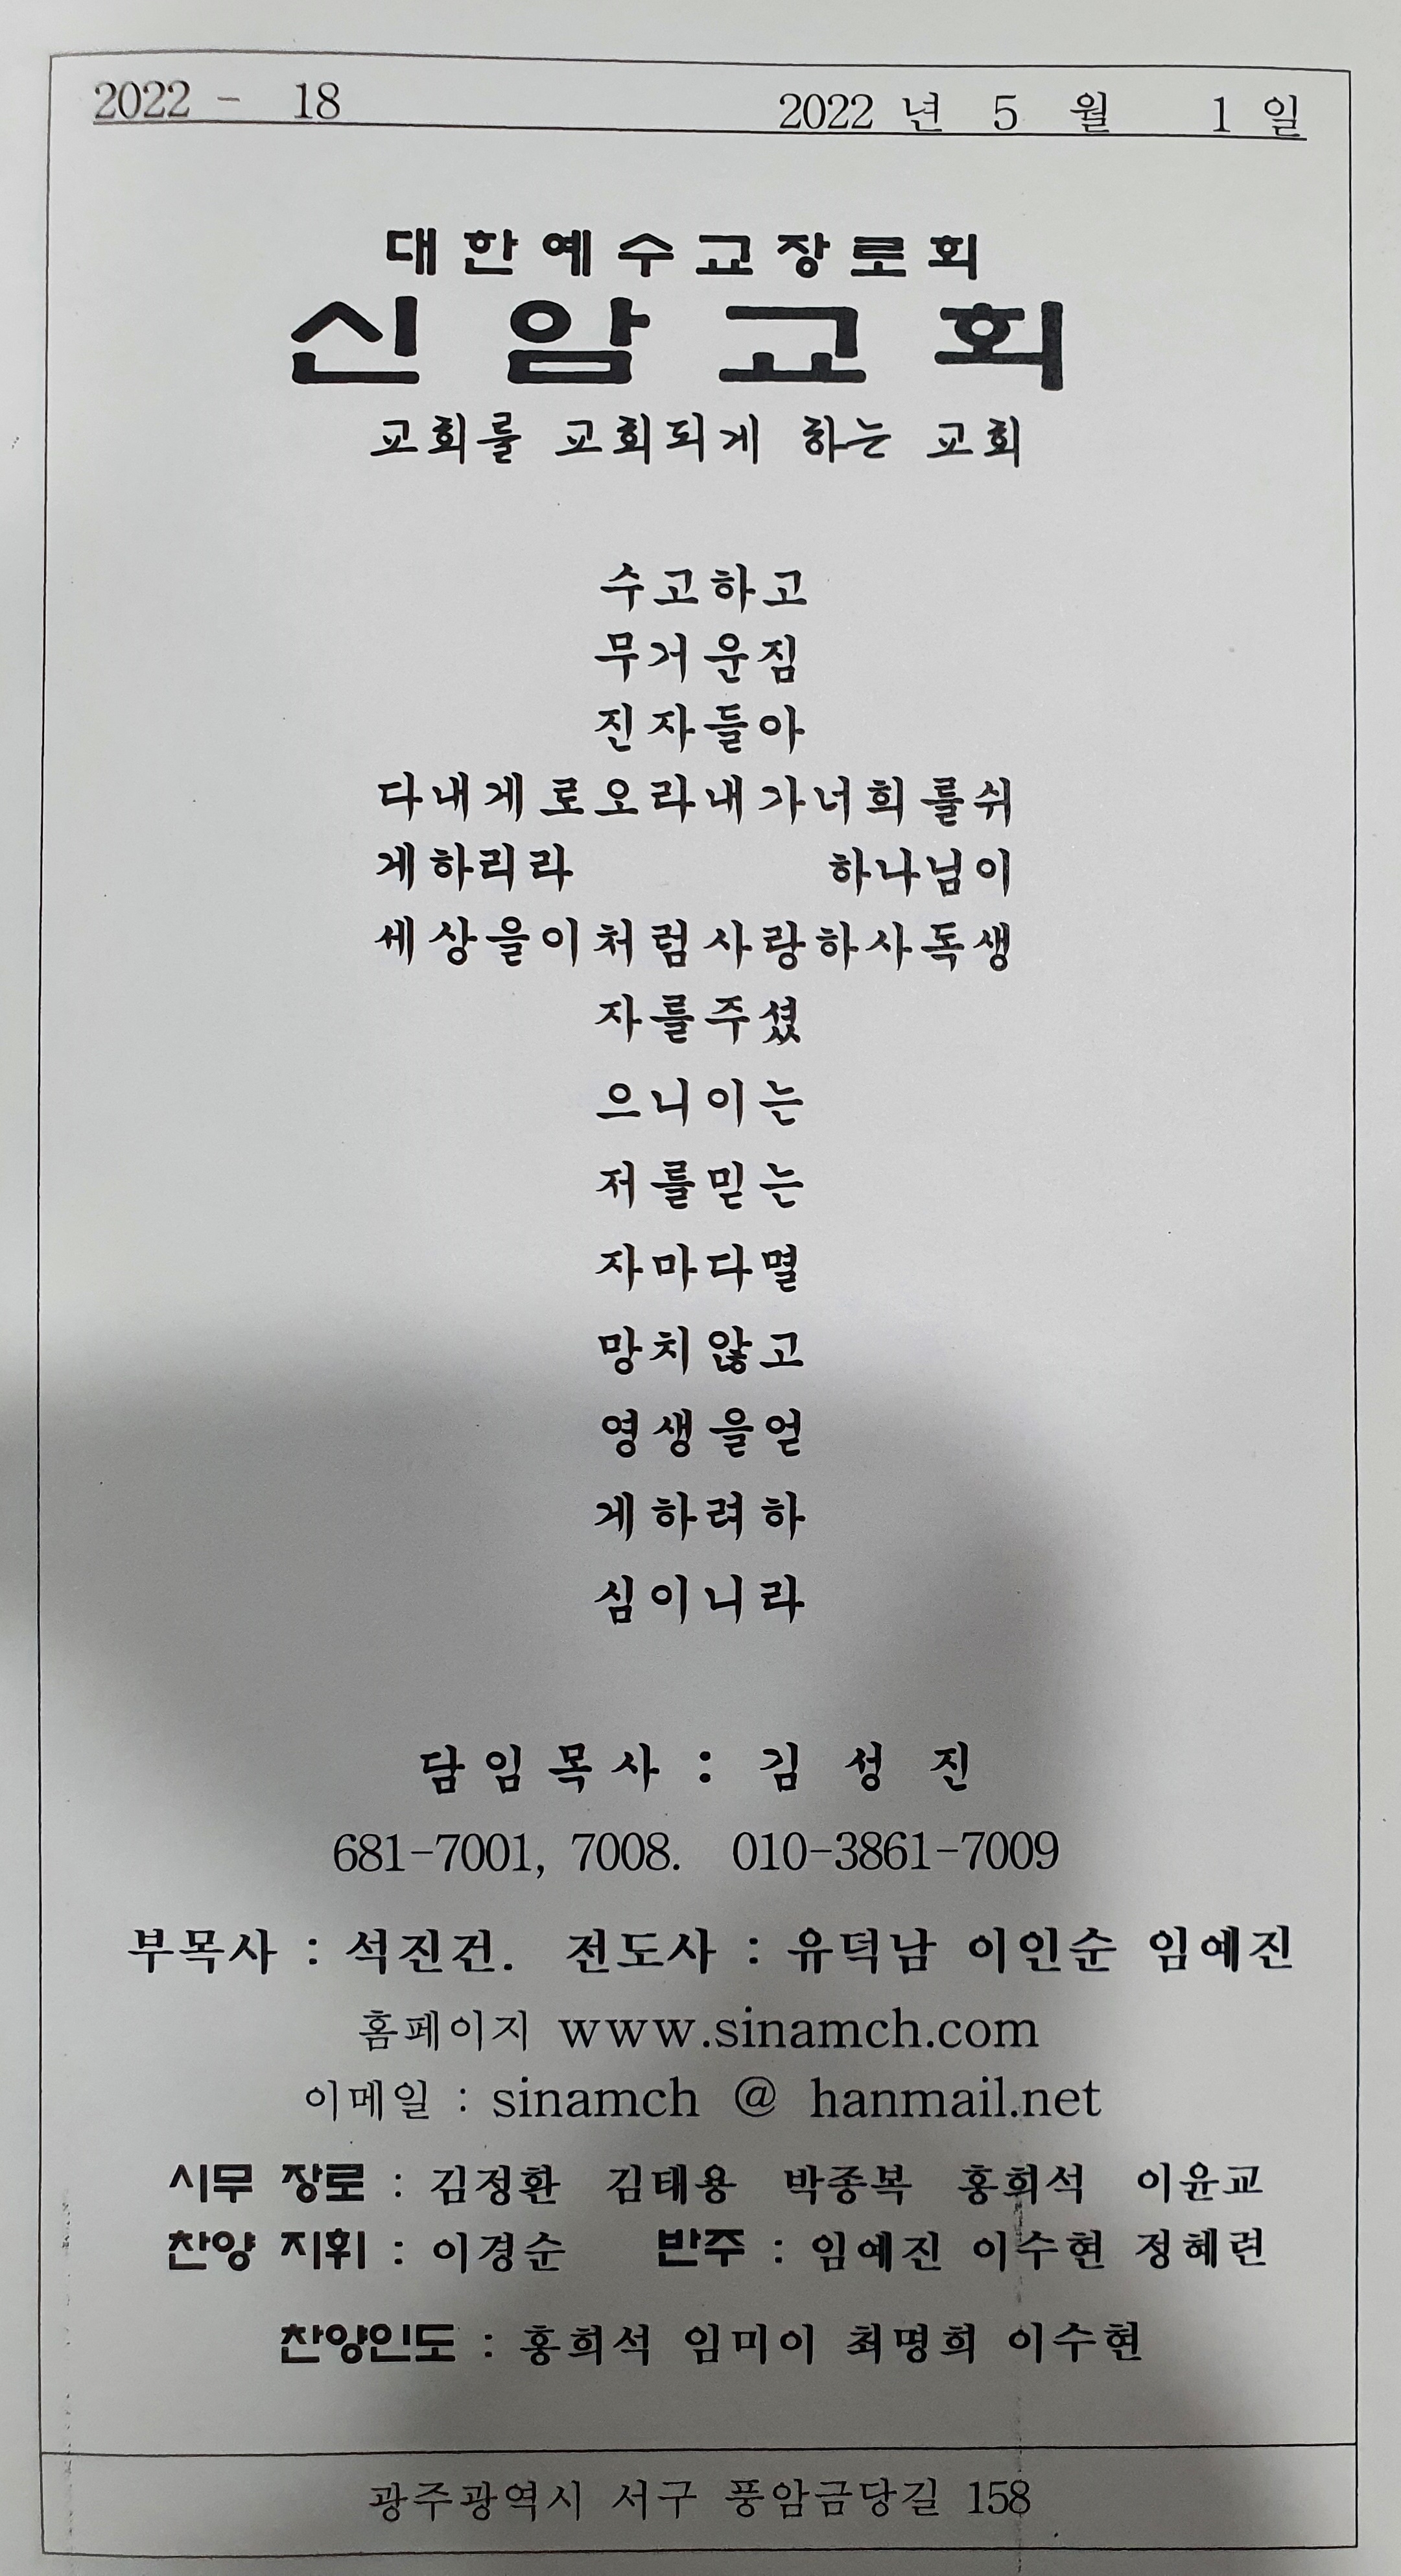 2022 - 18 2022 년 5 월 1 일
대한예수교장로회
신암교회
교회를 교회되게 하는 교회
수고하고
무거운짐
진자들아
다내게로오라내가너희를쉬
게하리라 하나님이
세상을이처럼사랑하사독생
자를주셨
으니이는
저를믿는
자마다멸
망치않고
영생을얻
게하려하
심이니라
담임목사 : 김 성 진
681-7001, 7008. 010-3861-7009
부목사 : 석진건. 전도사 : 유덕남 이인순 임예진
홈페이지 www.sinamch.com
이메일 : sinamch @ hanmail.net
시무 장로 : 김정환 김태용 박종복 홍희석 이윤교
찬양 지휘 : 이경순 반주 : 임예진 이수현 정혜련
찬양인도 : 홍희석 임미이 최명희 이수현
광주광역시 서구 풍암금당길 158